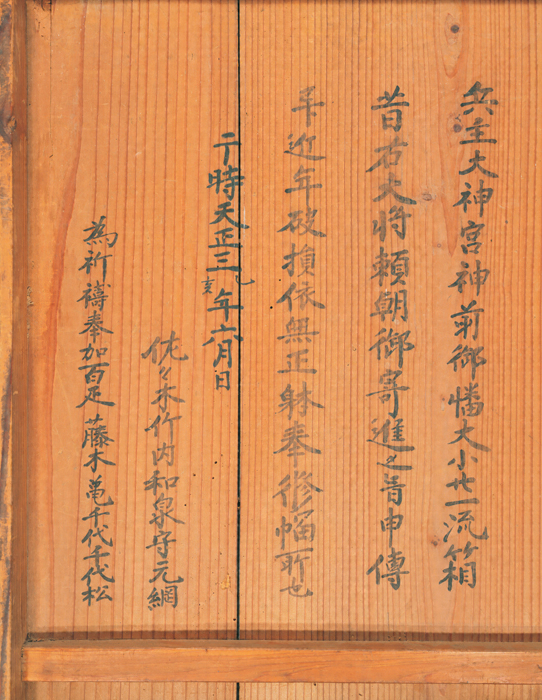 兵主大神宮神前御幡大小廿一流箱
昔右大将頼朝御寄進之旨申傳
年近年破損依無正躰奉修幡所也
于時天正三乙亥年六月日
佐々木竹内和泉守元綱
為祈禱奉加百疋藤木亀千代千代松